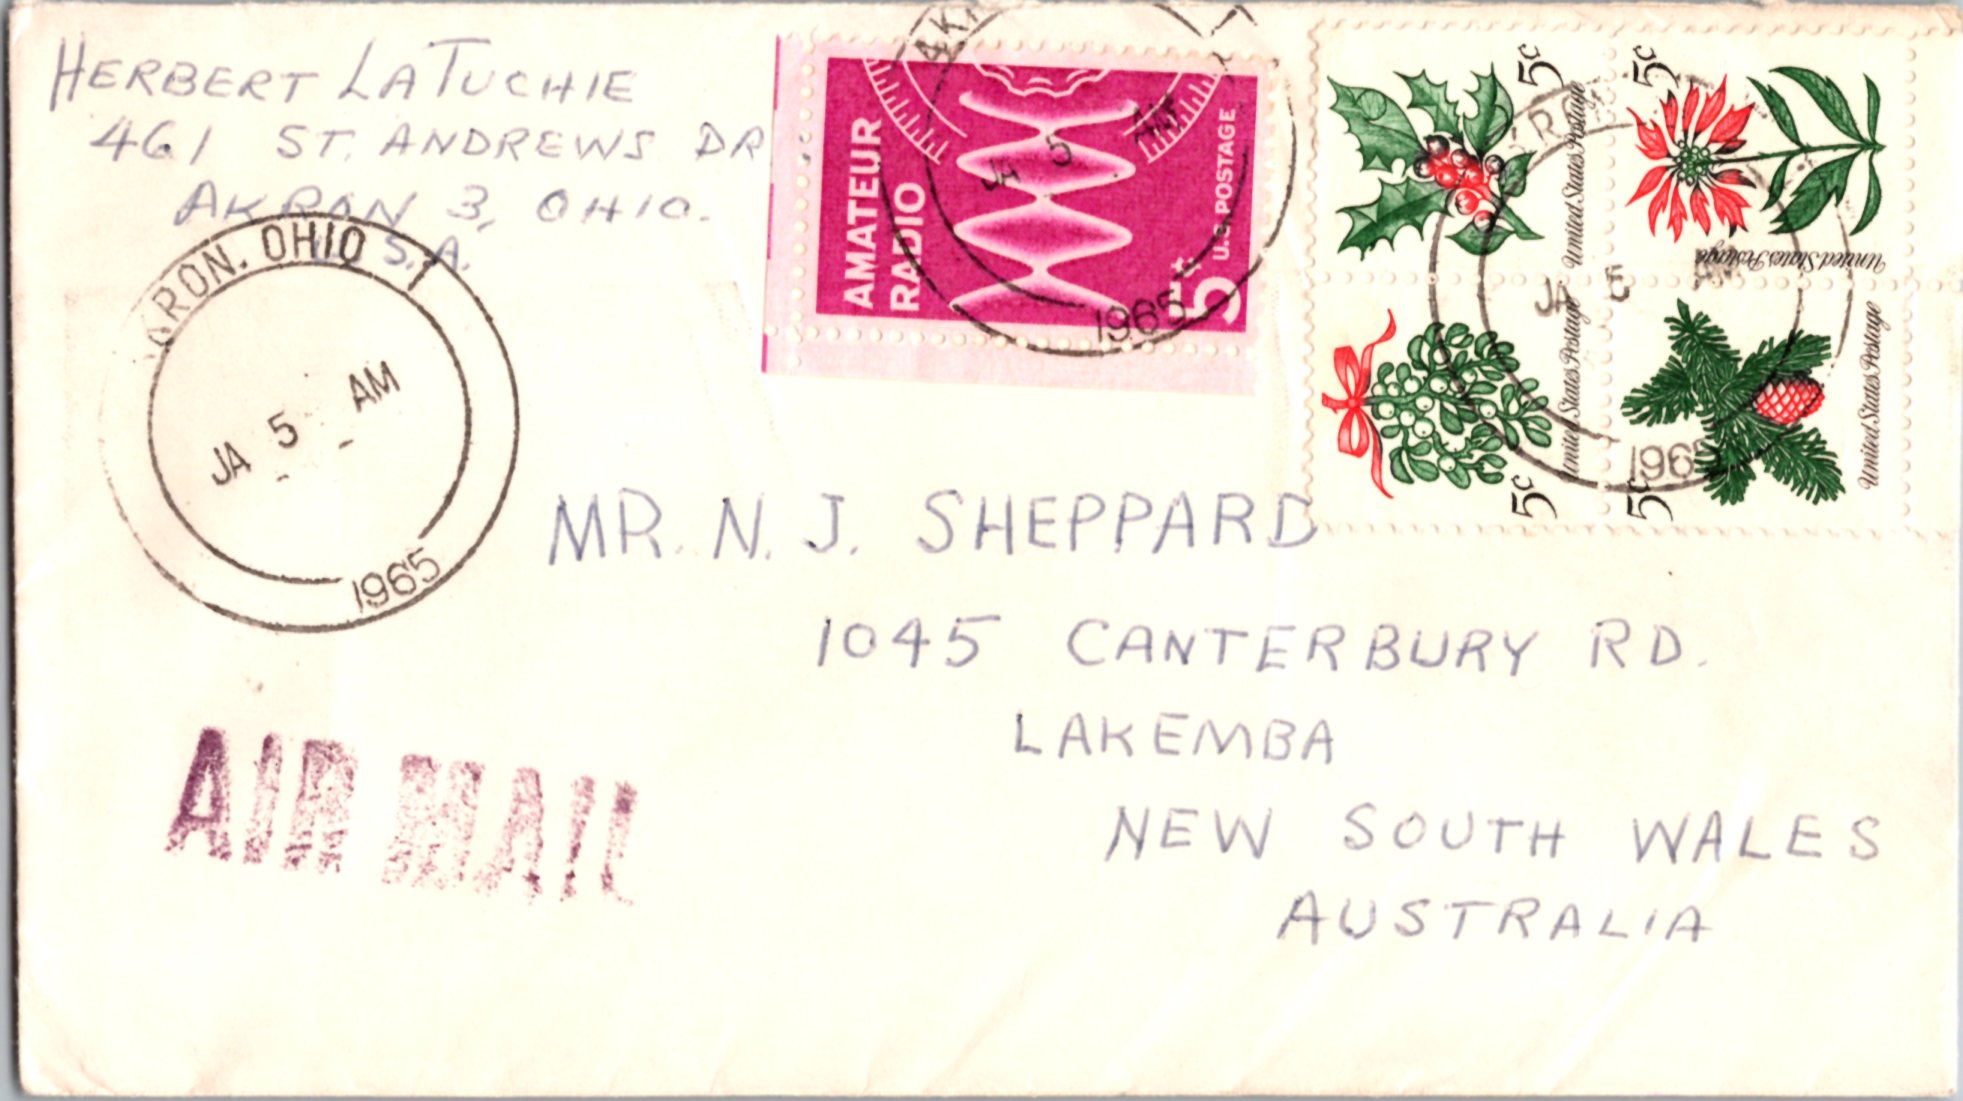 HERBERT LATUCHIE
461 ST. ANDREWS DR
AKRON 3, OHIO.
U.S.A.
AKRON, OHIO 1
JA 5 AM
1965
AMATEUR
RADIO
5¢ U.S. POSTAGE
AK
JA 5 AM
1965
5¢ United States Postage
5¢ United States Postage
5¢ United States Postage
5¢ United States Postage
JA 5
1965
MR. N. J. SHEPPARD
1045 CANTERBURY RD.
LAKEMBA
NEW SOUTH WALES
AUSTRALIA
AIR MAIL